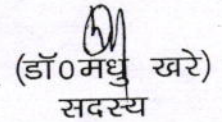 (डॉ0मधु खरे)
सदस्य